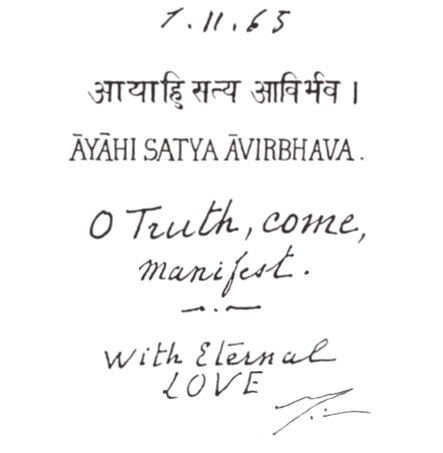 1.11.65
आयाहि सत्य आविर्भव ।
ĀYĀHI SATYA ĀVIRBHAVA.
O Truth, come,
manifest.
With Eternal
LOVE